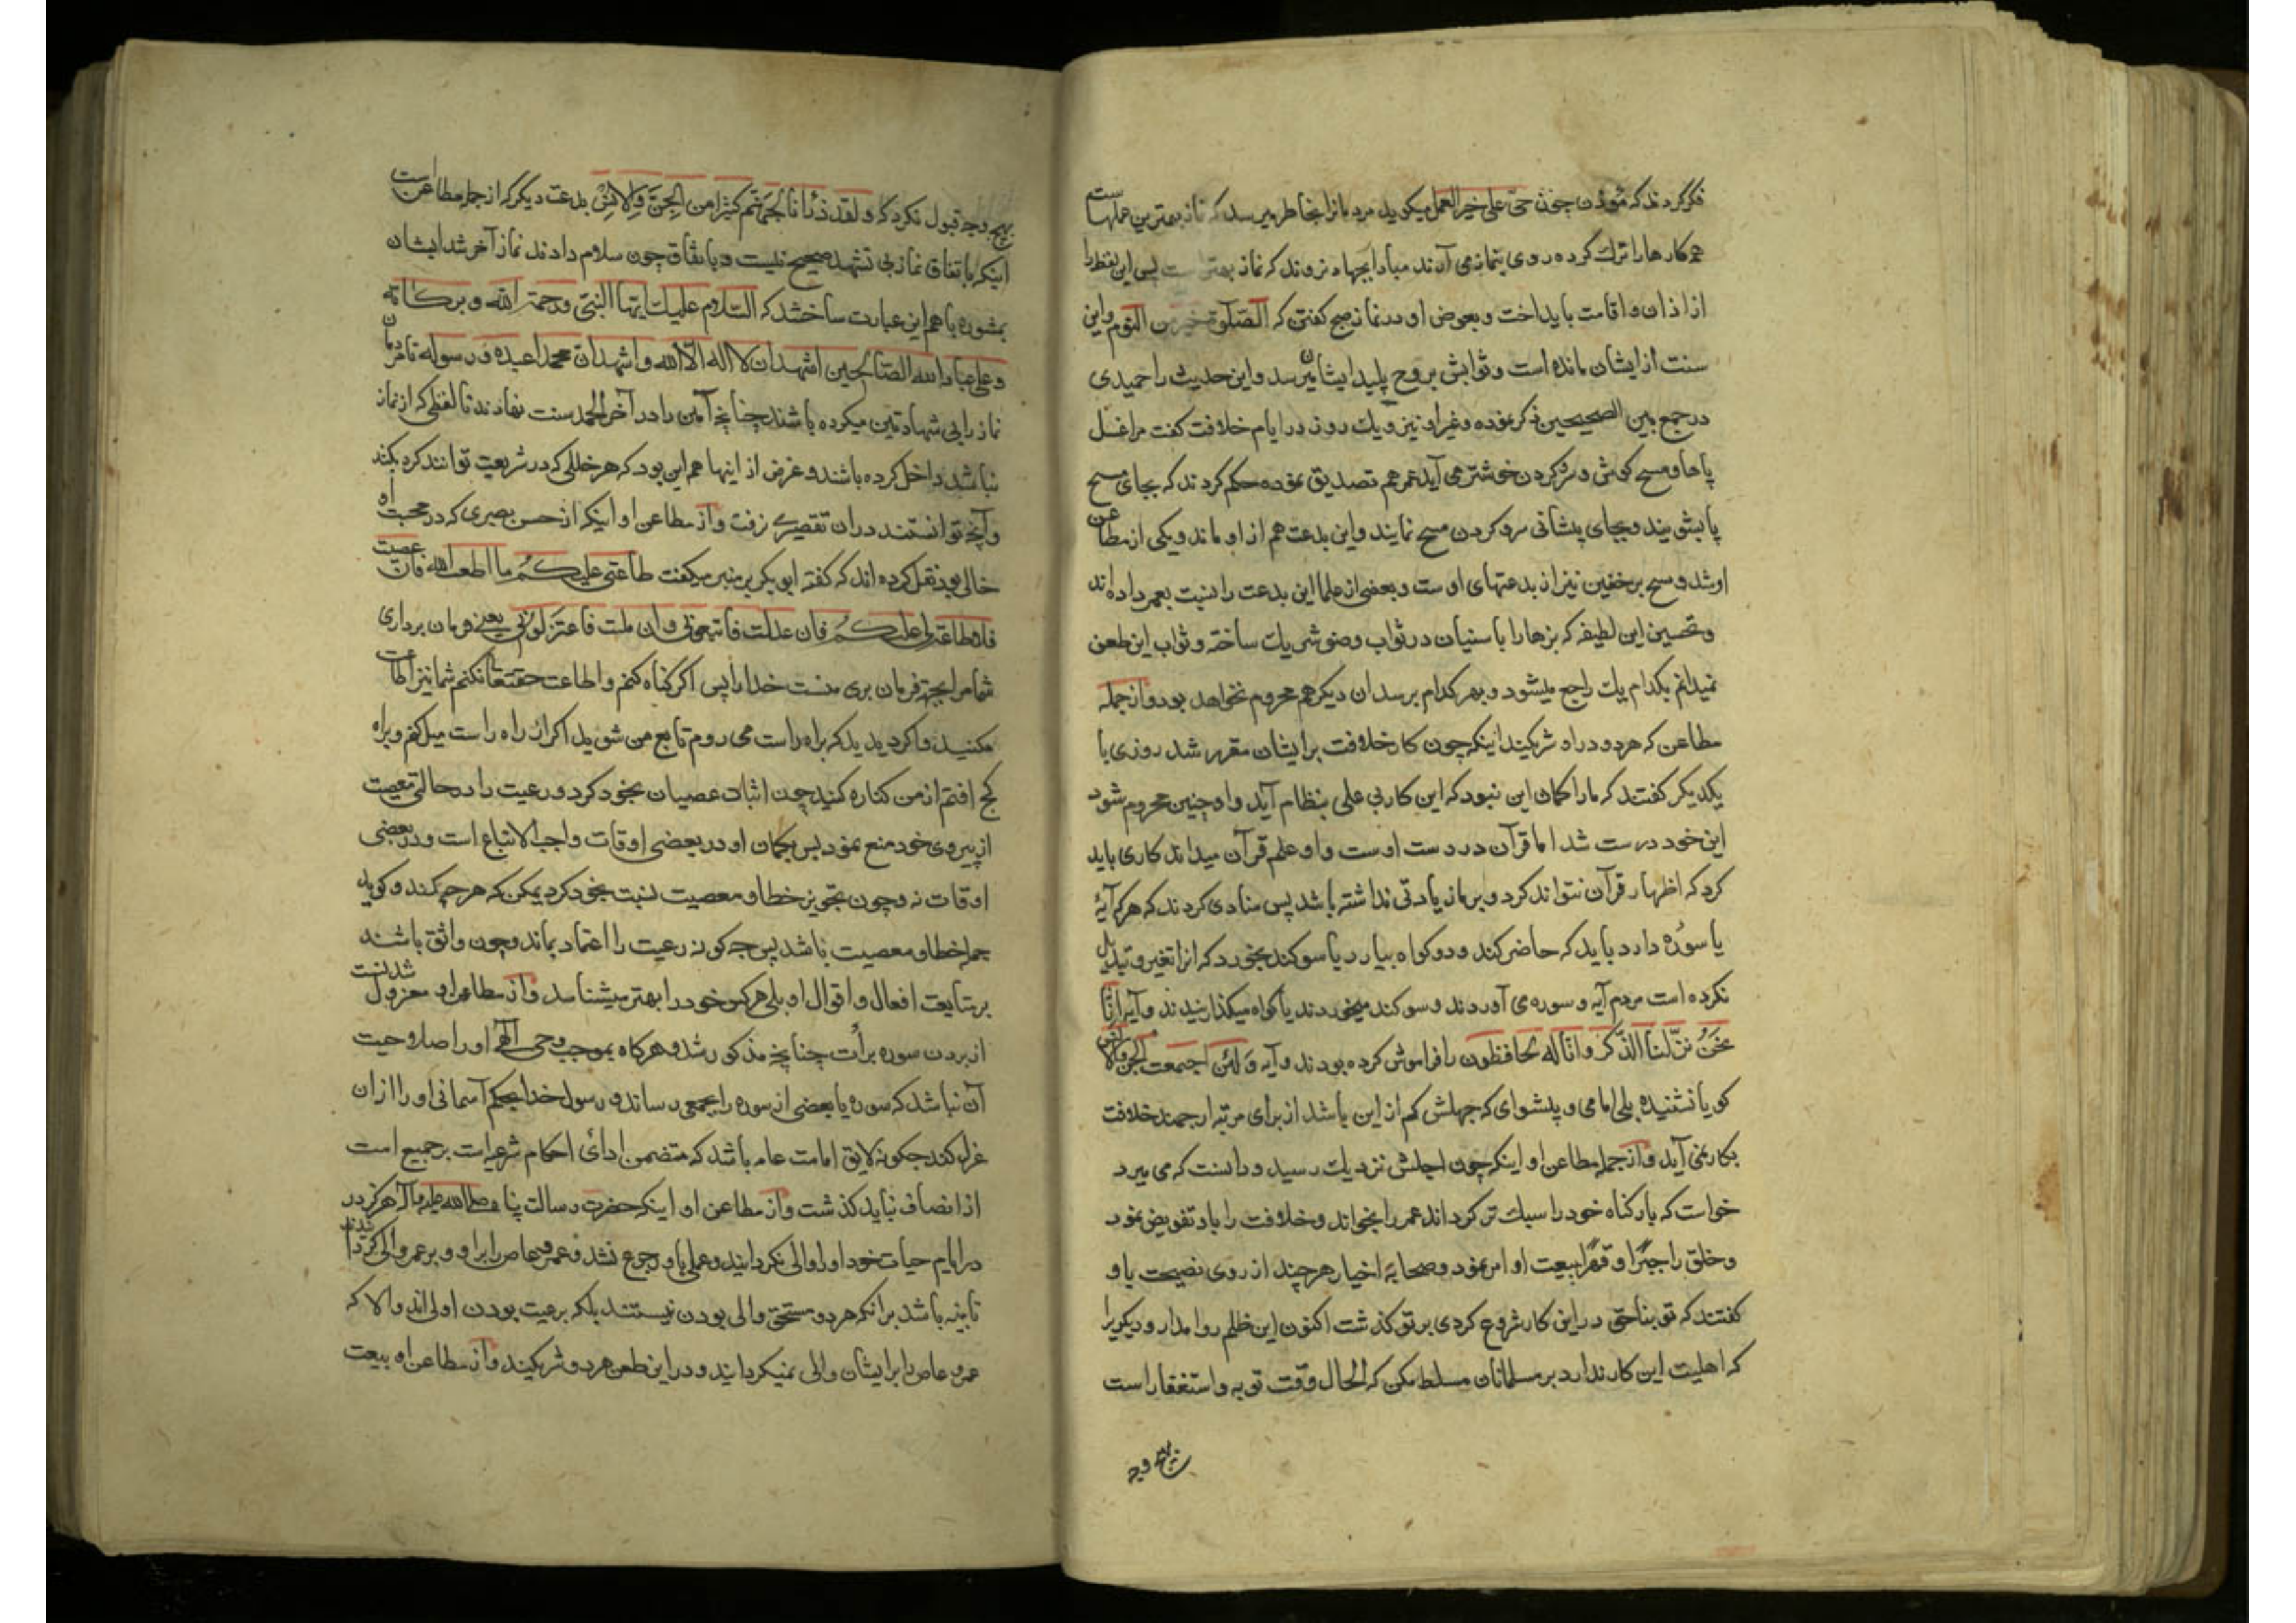 فکر کردند که مؤذن چون حی علی خیر العمل میکوید مردمانرا بخاطر میرسد که نماز بهترین عملهاست
همه کارها را ترك کرده روی بنماز می آرند مبادا بجهاد نروند که نماز بهتر است پس این لفظ را
از اذان و اقامت باید انداخت و بعوض او در نماز صبح کفتن که الصلوة خیر من النوم و این
سنت از ایشان مانده است و ثوابش بروح پلید ایشان میرسد و این حدیث را حمیدی
در جمع بین الصحیحین ذکر نموده و غیر او نیز و یك روز در ایام خلافت کفت مرا غسل
پاها و مسح کوش و سر و کردن خوشتر می آید عمر هم تصدیق نموده حکم کردند که بجای مسح
پا بشویند و بجای پیشانی سر و کردن مسح نمایند و این بدعت هم از او ماند و یکی از مطاعن
او شد و مسح بر خفین نیز از بدعتهای اوست و بعضی از علما این بدعت را نسبت بعمر داده اند
و تحسین این لطیفه که بزها را با سنیان در ثواب وضو شریك ساخته و ثواب این طعن
نمیدانم بکدام یك راجع میشود و بهر کدام برسد آن دیکر هم محروم نخواهد بود و از جمله
مطاعن که هر دو در او شریکند اینکه چون کار خلافت بر ایشان مقرر شد روزی با
یکدیکر کفتند که ما را کمان این نبود که این کار بی علی بنظام آید و او چنین محروم شود
این خود درست شد اما قرآن در دست اوست و او علم قرآن میداند کاری باید
کرد که اظهار قرآن نتواند کرد و بر ما زیادتی نداشته باشد پس منادی کردند که هر که آیهٔ
یا سورهٔ دارد باید که حاضر کند و دو کواه بیارد یا سوکند بخورد که انرا تغیر و تبدیل
نکرده است مردم آیه و سوره می آوردند و سوکند میخوردند یا کواه میکذرانیدند و آیه انا
نحن نزلنا الذکر و انا له لحافظون را فراموش کرده بودند و آیه و لئن اجتمعت الجن و الانس
کویا نشنیده بلی امامی و پیشوای که جهلش کم از این باشد از برای مرتبه ارجمند خلافت
بکار نمی آید و از جمله مطاعن او اینکه چون اجلش نزدیك رسید و دانست که می میرد
خواست که بار کناه خود را سبك تر کرداند عمر را بخواند و خلافت را باو تفویض نمود
و خلق را جبرا و قهرا ببیعت او امر نمود و صحابهٔ اخیار هر چند از روی نصیحت باو
کفتند که تو بناحق در این کار شروع کردی بر تو کذشت اکنون این ظلم روا مدار و دیکریرا
که اهلیت این کار ندارد بر مسلمانان مسلط مکن که الحال وقت توبه و استغفار است
بهیچ وجه
بهیچ وجه قبول نکرد که و لقد ذرأنا لجهنم کثیرا من الجن و الانس بدعت دیکر که از جمله مطاعن است
اینکه باتفاق نماز بی تشهد صحیح نیست و باتفاق چون سلام دادند نماز آخر شد ایشان
بمشوره با هم این عبارت ساختند که السلام علیك ایها النبی و رحمة الله و برکاته
و علی عباد الله الصالحین اشهد ان لا اله الا الله و اشهد ان محمدا عبده و رسوله تا مردمان
نماز را بی شهادتین میکرده باشند چنانچه آمین را در آخر الحمد سنت نهادند تا لفظی که از نماز
نباشد داخل کرده باشند و غرض از اینها هم این بود که هر خللی که در شریعت توانند کرد بکنند
و آنچه توانستند در آن تقصیر نرفت و از مطاعن او اینکه از حسن بصری که در محبت او
خالی بود نقل کرده اند که کفته ابو بکر بر منبر میکفت طاعتی علیکم ما اطعت الله فان عصیت
فلا طاعة لی علیکم فان عدلت فاتبعونی و ان ملت فاعتزلونی یعنی فرمان برداری
شما مرا بجهة فرمان بری منست خدا را پس اکر کناه کنم و اطاعت حقتعالی نکنم شما نیز اطاعت
مکنید و اکر دیدید که براه راست می روم تابع من شوید اکر از راه راست میل کنم و براه
کج افتم از من کناره کنید چون اثبات عصیان بخود کرد و رعیت را در حالتی معصیت
از پیروی خود منع نمود پس بکمان او در بعضی اوقات واجب الاتباع است و در بعضی
اوقات نه و چون تجویز خطا و معصیت نسبت بخود کرد یمکن که هر چه کند و کوید
جمله خطا و معصیت باشد پس چه کونه رعیت را اعتماد بماند و چون واثق باشند
بر متابعت افعال و اقوال او بلی هر کس خود را بهتر میشناسد و از مطاعن او معزول شدنست
از بردن سوره برأت چنانچه مذکور شد و هر کاه بموجب وحی آلهی او را صلاحیت
آن نباشد که سوره یا بعضی از سوره را بجمعی رساند و رسول خدا بحکم آسمانی او را از ان
عزل کند چکونه لایق امامت عامه باشد که متضمن ادائ احکام شرعیه است بر جمیع امت
از انصاف نباید کذشت و از مطاعن او اینکه حضرت رسالت پناه صلی الله علیه و آله هرکز در
در ایام حیات خود او را والی نکردانید و عملی باو رجوع نشد و عمرو عاص را بر او و بر عمر والی کردانیدند
تا بینه باشد بر آنکه هر دو مستحق والی بودن نیستند بلکه برعیت بودن اولی اند و الا که
عمرو عاص را بر ایشان والی نمیکردانید و در این طعن هر دو شریکند و از مطاعن او بیعت